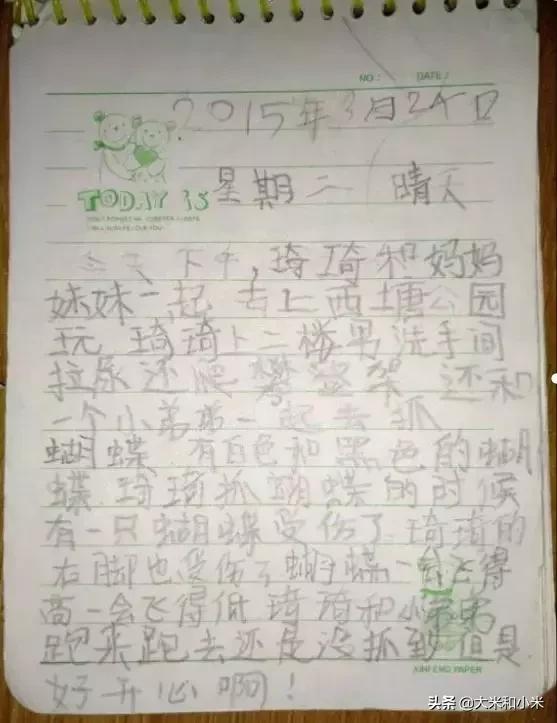 NO: DATE:
2015年3月24日
TODAY IS
星期二 晴天
今天下午,琦琦和妈妈
妹妹一起去上西塘公园
玩 琦琦上二楼男洗手间
拉尿还爬攀登架 还和
一个小弟弟一起去抓
蝴蝶 有白色和黑色的蝴
蝶 琦琦抓蝴蝶的时候
有一只蝴蝶受伤了 琦琦的
右脚也受伤了 蝴蝶一会飞得
高一会飞得低 琦琦和小弟弟
跑来跑去还是没抓到 但是
好开心啊!
XINFENG PAPER
头条 @大米和小米